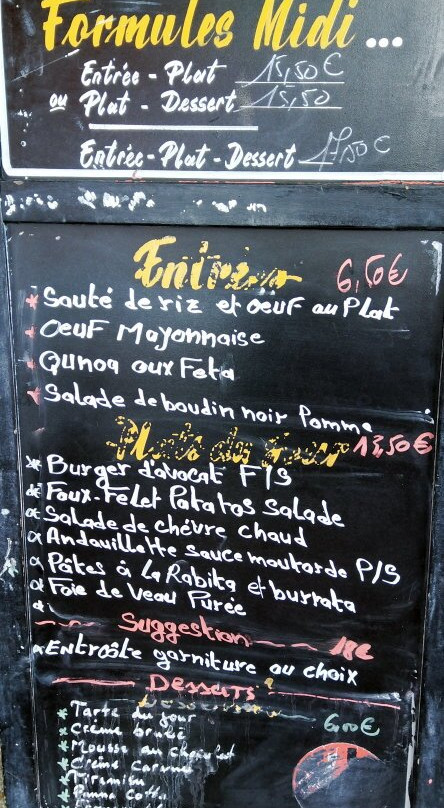 Formules Midi ...
Entrée - Plat 15,50€
ou Plat - Dessert 15,50
Entrée - Plat - Dessert 17,50€
6,50€
* Sauté de riz et Oeuf au Plat
* Oeuf Mayonnaise
* Qunoa aux Feta
* Salade de boudin noir Pomme
Plats du Jour 13,50€
* Burger d'avocat F/S
* Faux-Felet Patatos Salade
Salade de chévre chaud
Andouillette sauce moutarde P/S
Pâtes à La Rabita et burrata
Foie de Veau Purée
Suggestion
Entroste garniture au choix
Desserts
* Tarte du jour 6,00€
* Créme brulé
* Mousse au chocolat
* Créme Caramel
* Tiramisu
* Panna Cotta